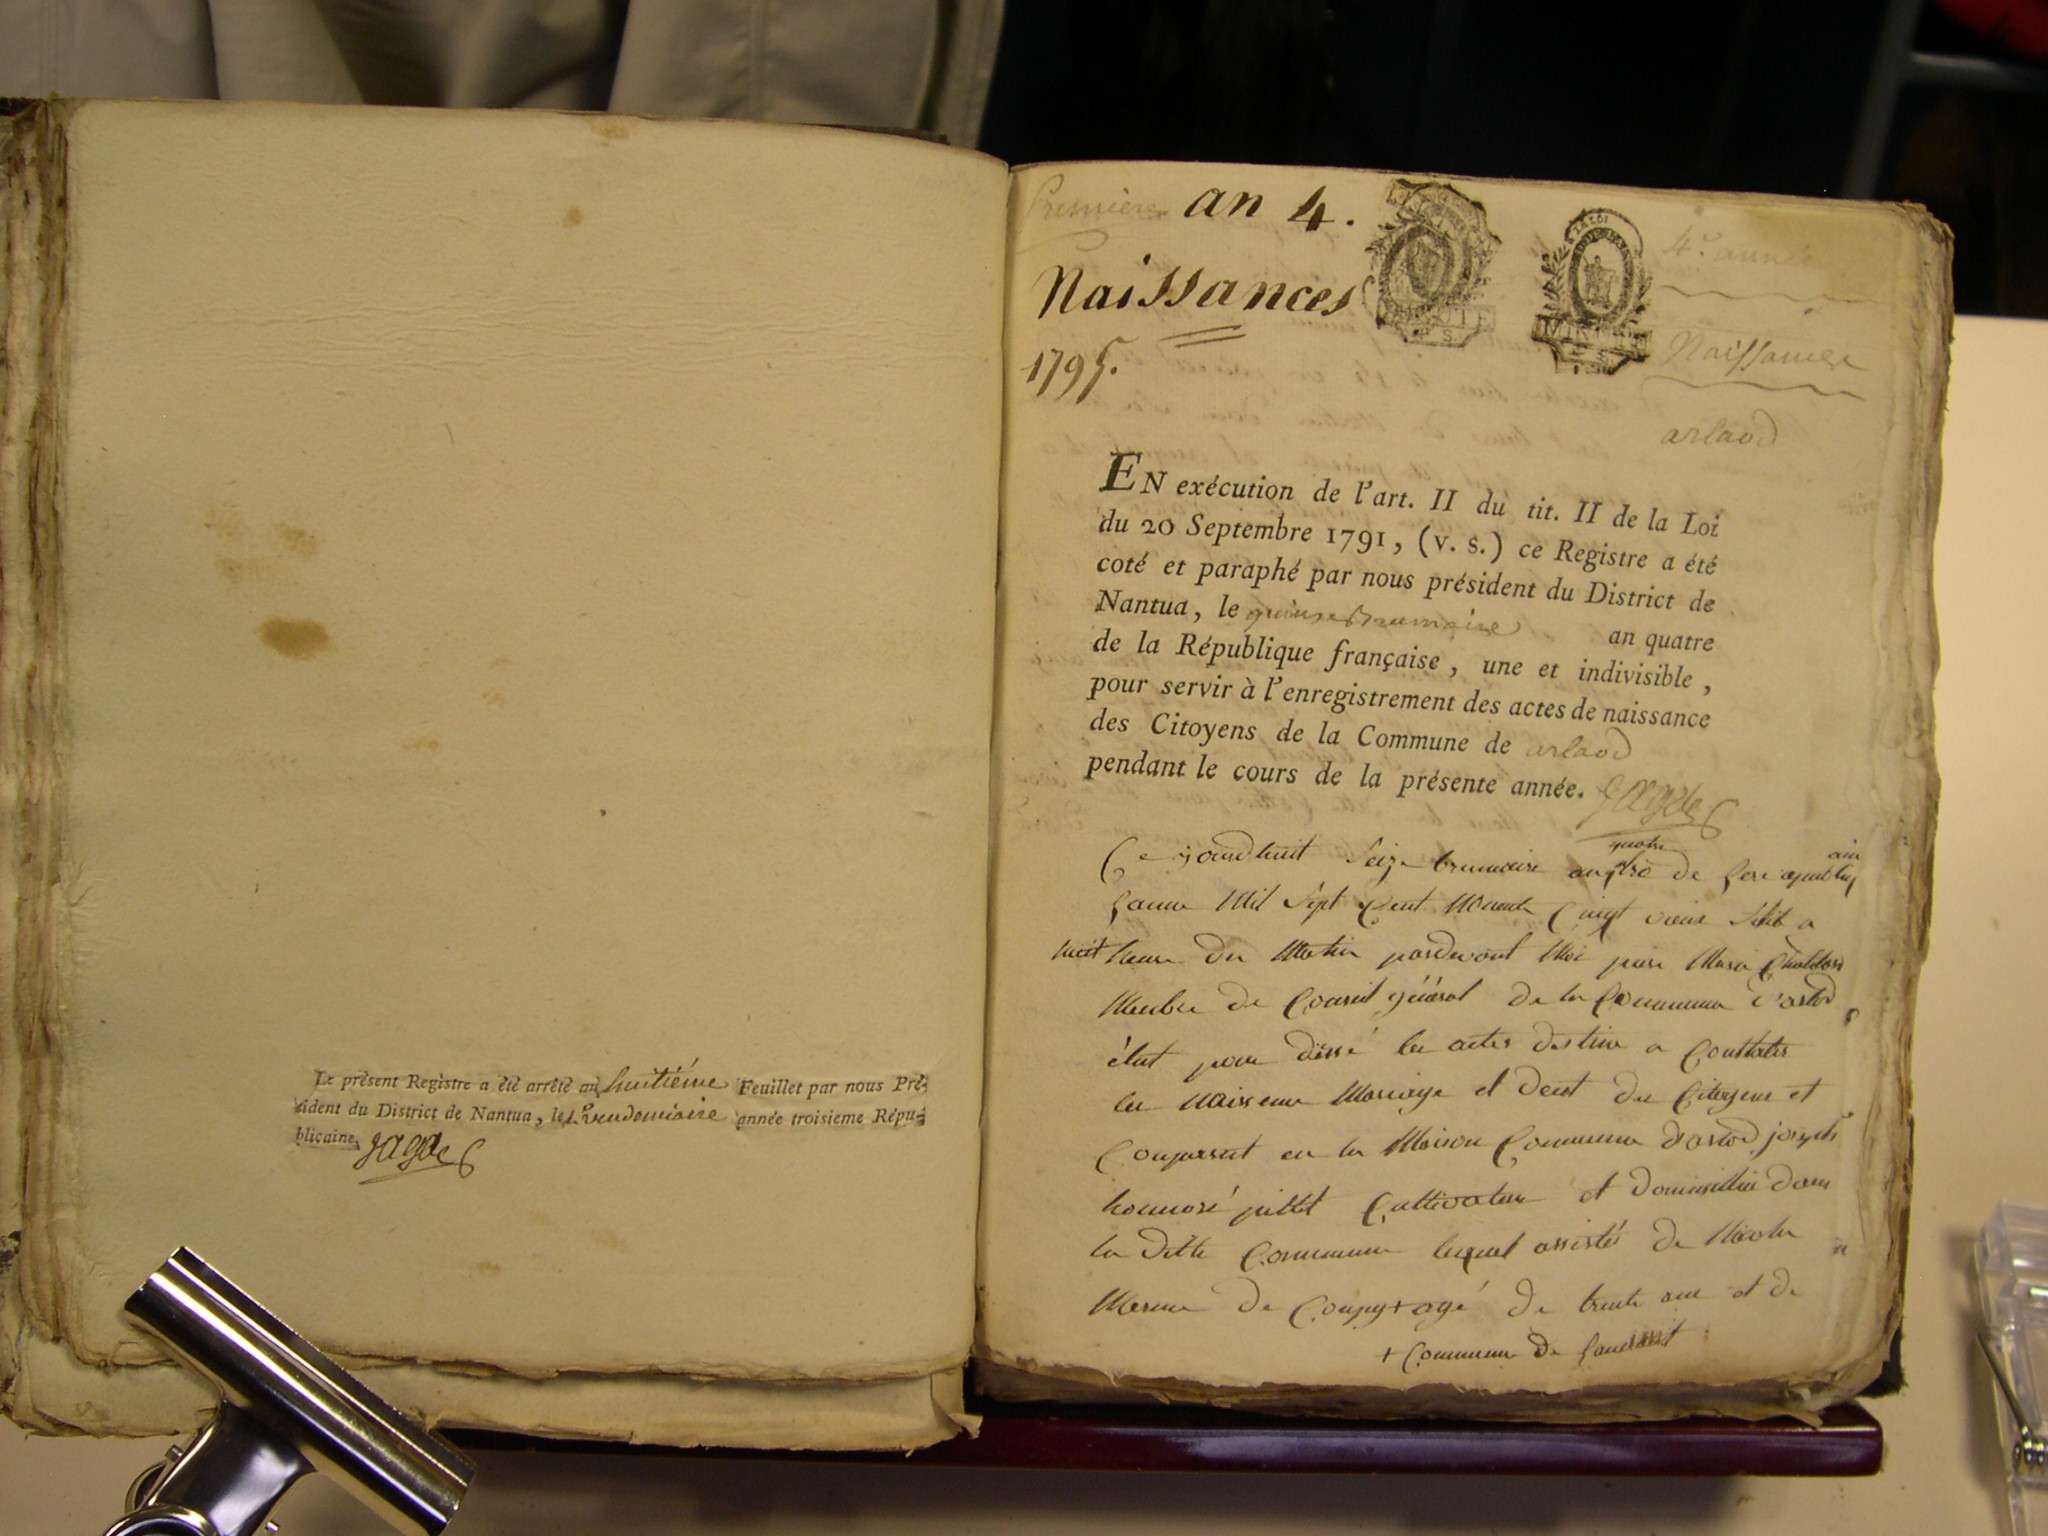 Le présent Registre a été arrêté au huitième Feuillet par nous Pré-
sident du District de Nantua, le Vendemiaire année troisieme Répu-
blicaine.
Jagot
Première an 4.
Naissances
1795.
4e. année
Naissances
arlaod
EN exécution de l'art. II du tit. II de la Loi
du 20 Septembre 1791, (v. s.) ce Registre a été
coté et paraphé par nous président du District de
Nantua, le quinze Brumaire an quatre
de la République française, une et indivisible,
pour servir à l'enregistrement des actes de naissance
des Citoyens de la Commune de arlaod
pendant le cours de la présente année.
Ce jourdhuit Seize brumaire quatre de
Mil Sept Cent Nonente Cinqt vieux Stil a
huit heure du Matin pardevant Moi
Membre de Conseil général de la Commune d'arlod
élut pour les actes destine a Constater
les Naissance Mariage et des Citoyens et
en la Maison Commune d'arlod joseph
honnoré Cultivateur et dans
la ditte Commune lequel assistés de Nicolas
de Coupy + agé de trente ans et de
+ Commune de